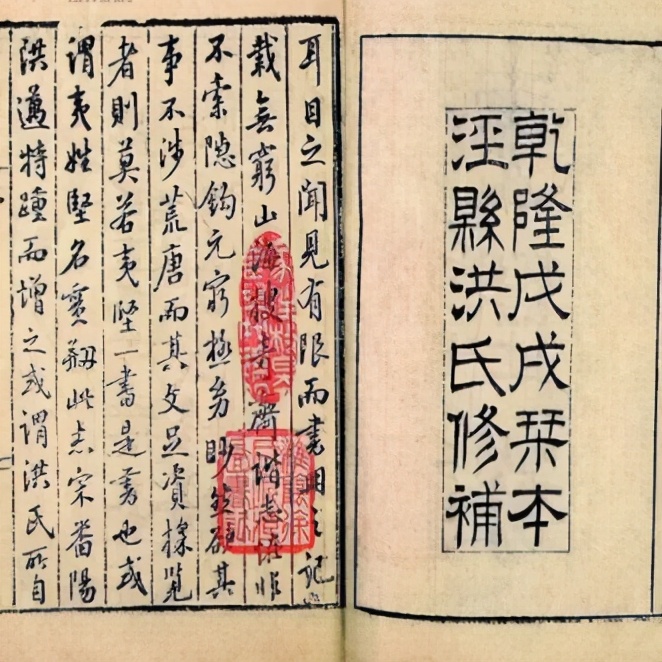 乾隆戊戌栞本
涇縣洪氏修補
耳目之聞見有限而書冊之記
載無窮山海搜奇齊諧志怪非
不索隱鈎元窮極幼眇然其
事不涉荒唐而其文足資採覽
者則莫若夷堅一書是書也或
謂夷姓堅名實剏此志宋番陽
洪邁特踵而增之或謂洪氏所自